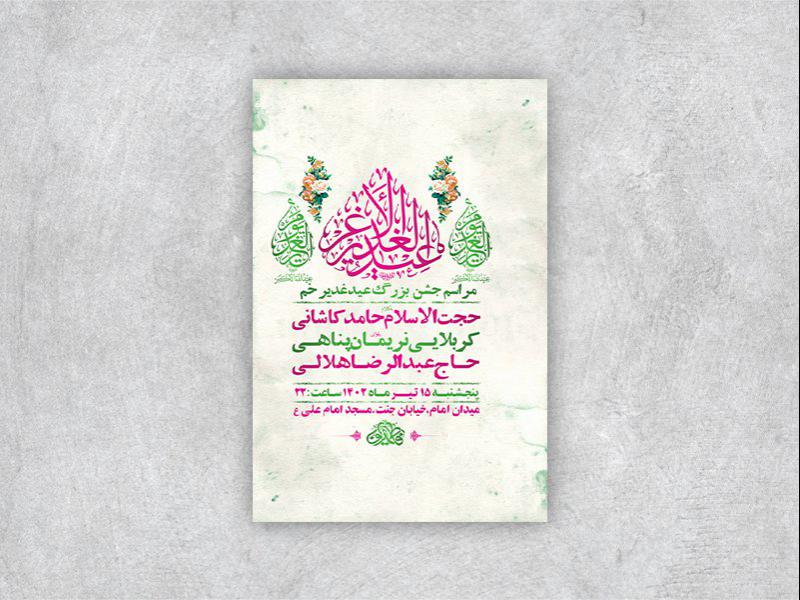 عید الغدیر الأغر
یوم الغدیر
یوم الغدیر
عیدالله الاکبر
عیدالله الاکبر
مراسم جشن بزرگ عید غدیر خم
حجت الاسلام حامد کاشانی
کربلایی نریمان پناهی
حاج عبدالرضا هلالی
پنجشنبه ۱۵ تیر ماه ۱۴۰۲ ساعت: ۲۲
میدان امام، خیابان جنت، مسجد امام علی ع